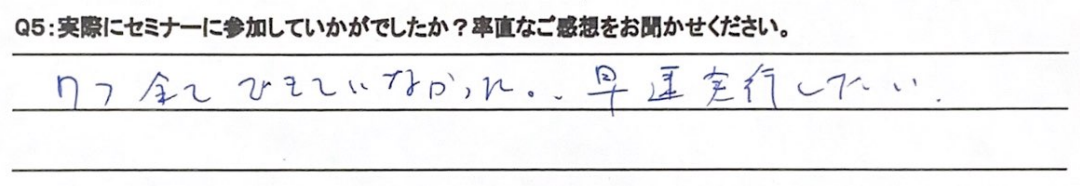 Q5:実際にセミナーに参加していかがでしたか?率直なご感想をお聞かせください。
7つ全てできていなかった。早速実行したい.